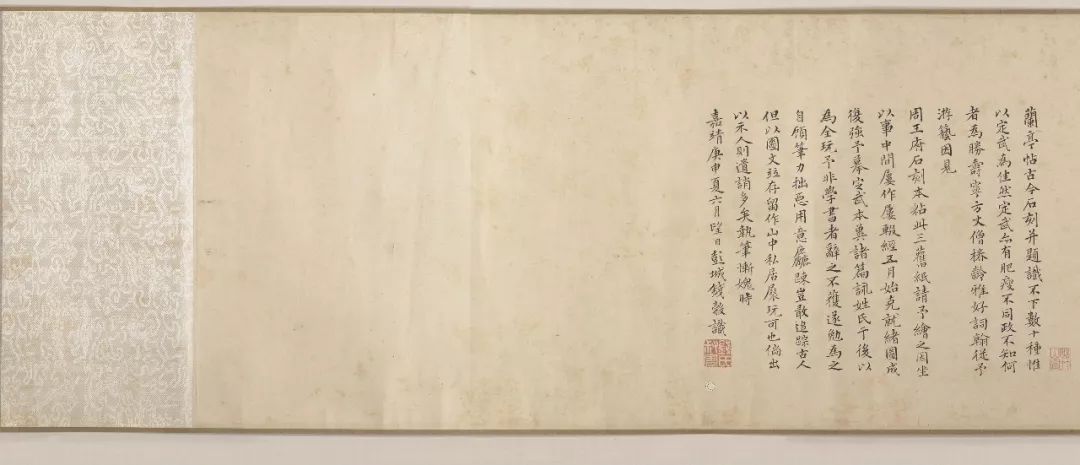 蘭亭帖古今石刻并題識不下數十種惟
以定武為佳然定武亦有肥瘦不同政不知何
者為勝壽寧方丈僧椿齡雅好詞翰從予
游藝因見
周王府石刻本粘此三舊紙請予繪之因坐
以事中間屢作屢輟經五月始克就緒圖成
復強予摹定武本諸篇詠姓氏于後以
為全玩予非學書者辭之不獲遂勉為之
自顧筆力拙惡用意麤踈豈敢追踪古人
但以圖文並存留作山中私居展玩可也倘出
以示人則遺誚多矣執筆慚媿時
嘉靖庚申夏六月望日彭城錢榖識